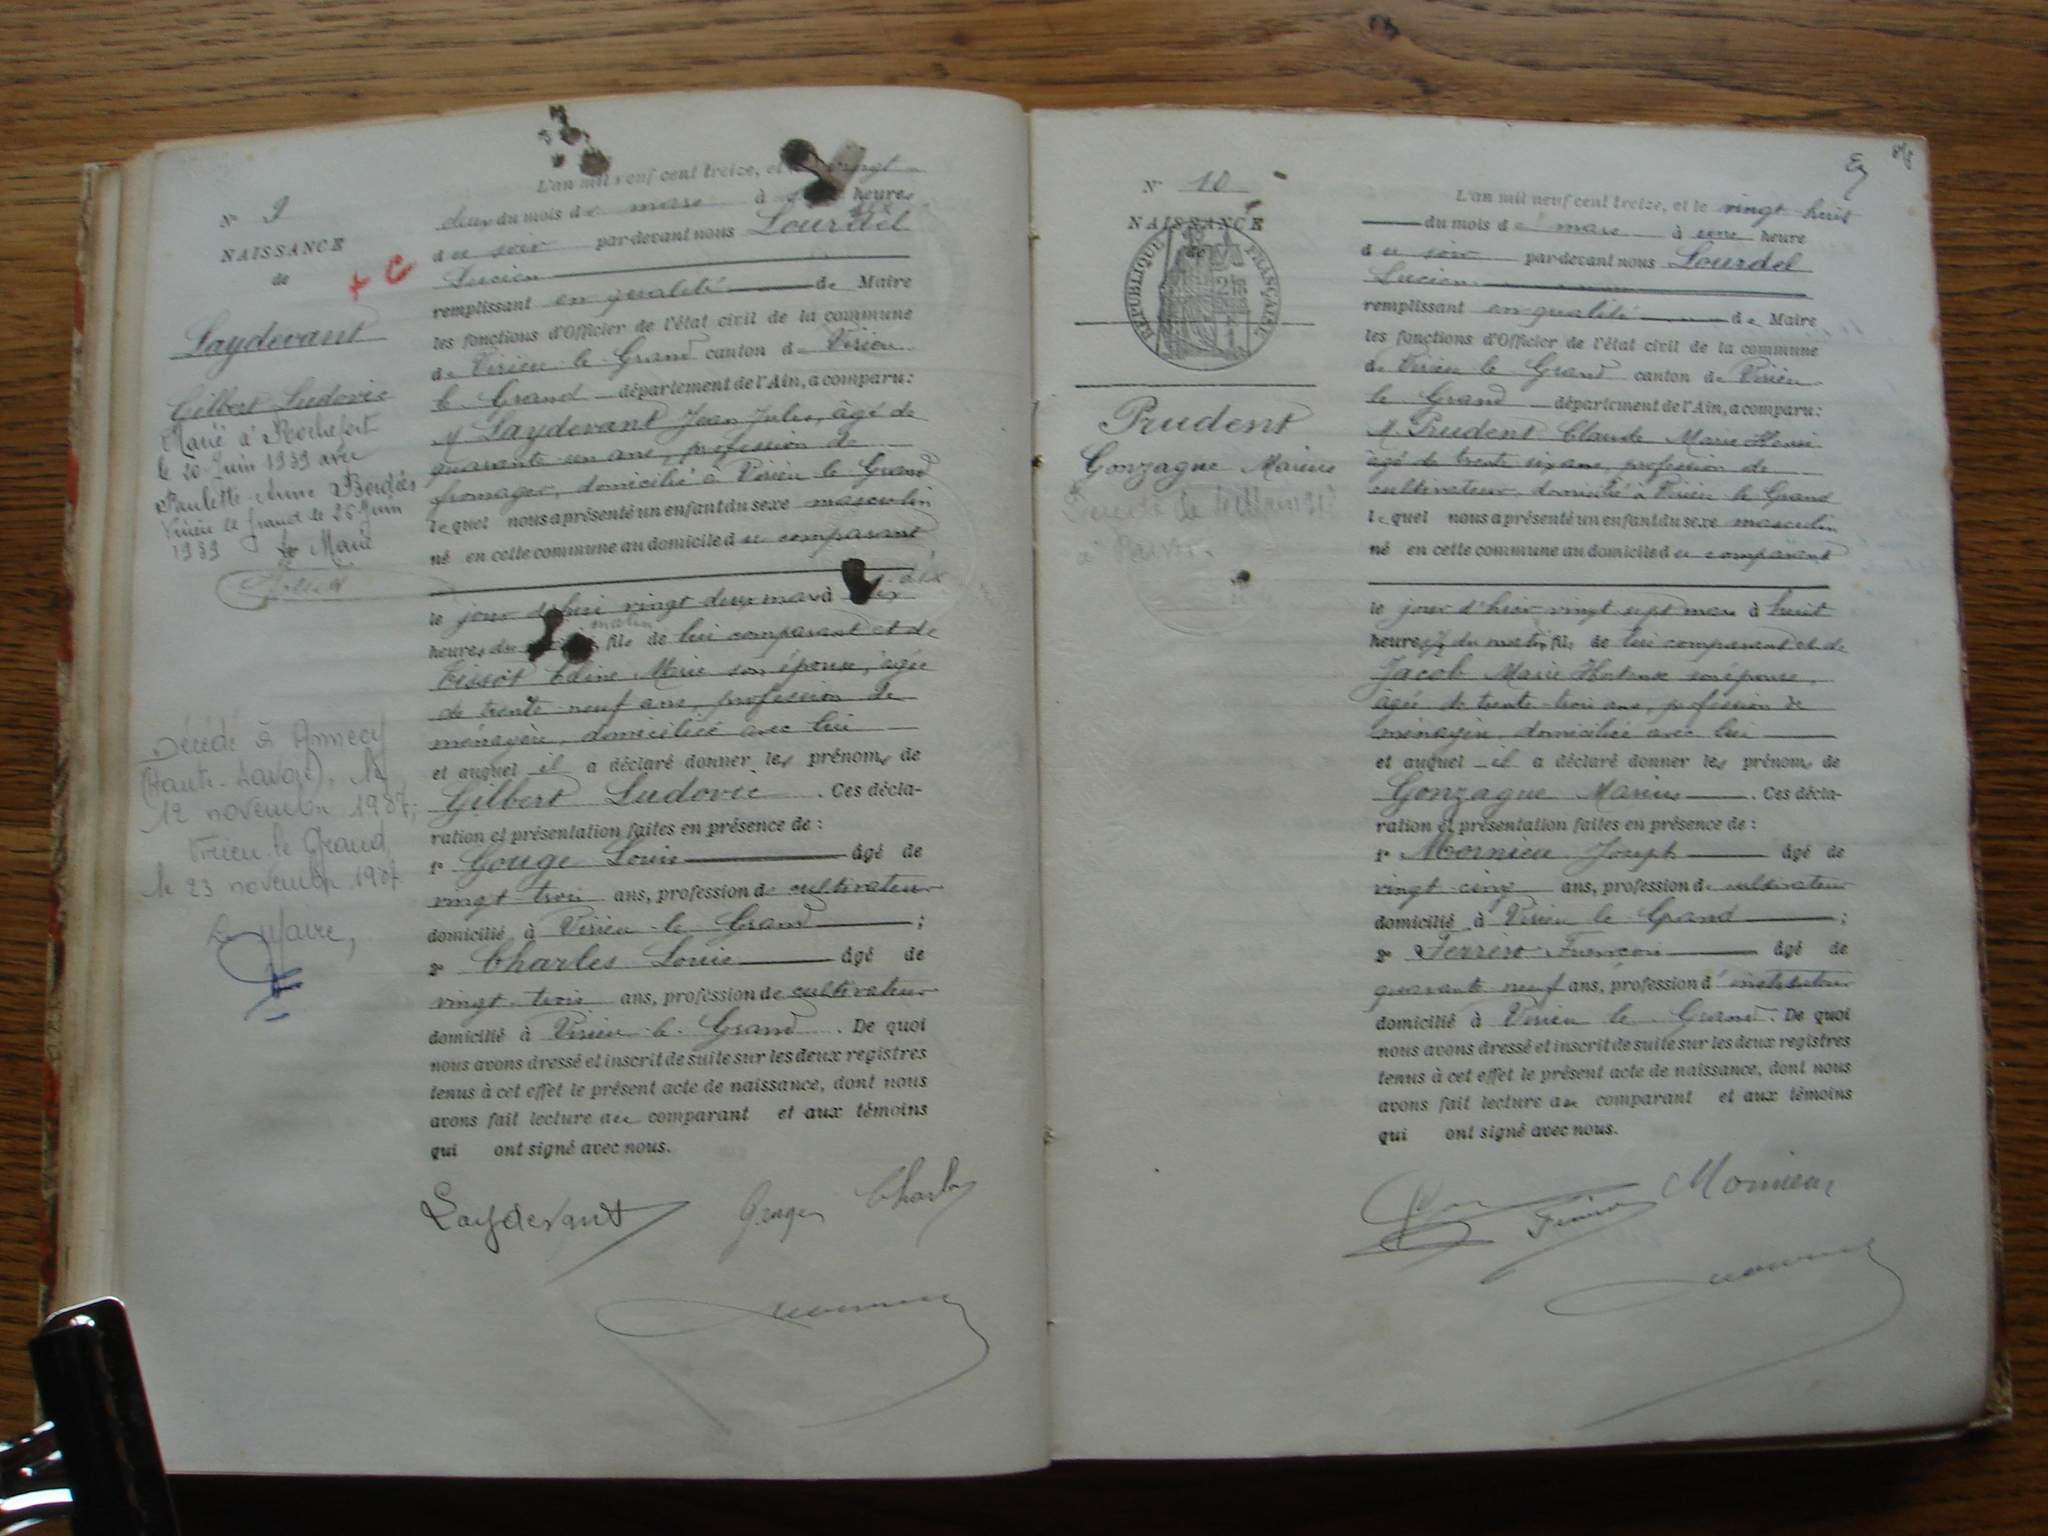 N° 9
NAISSANCE
de
+ C
Laydevant
Gilbert Ludovic
Marié à Rochefort
le 20 Juin 1939 avec
Paulette Anne Bordès
Virieu le Grand le 26 Juin
1939 Le Maire
Décédé à Annecy
(Haute-Savoie), le
12 novembre 1987;
Virieu-le-Grand,
le 23 novembre 1987
Le Maire,
L'an mil neuf cent treize, et le vingt
deux du mois de mars à heures
du soir par-devant nous Lourdel
Lucien
remplissant en qualité de Maire
les fonctions d'Officier de l'état civil de la commune
de Virieu-le-Grand canton de Virieu
le Grand département de l'Ain, a comparu :
M Laydevant Jean Jules, âgé de
quarante un ans, profession de
fromager, domicilié à Virieu-le-Grand
lequel nous a présenté un enfant du sexe masculin
né en cette commune au domicile du comparant
le jour d'hui vingt deux mars à dix
heures du matin fils de lui comparant et de
Tissot Céline Marie son épouse, âgée
de trente-neuf ans, profession de
ménagère, domiciliée avec lui
et auquel il a déclaré donner les prénoms de
Gilbert Ludovic. Ces décla-
ration et présentation faites en présence de :
1° Gouge Louis âgé de
vingt-trois ans, profession de cultivateur
domicilié à Virieu-le-Grand ;
2° Charles Louis âgé de
vingt-trois ans, profession de cultivateur
domicilié à Virieu-le-Grand. De quoi
nous avons dressé et inscrit de suite sur les deux registres
tenus à cet effet le présent acte de naissance, dont nous
avons fait lecture au comparant et aux témoins
qui ont signé avec nous.
Laydevant Gouge Charles
N° 10
NAISSANCE
de
RÉPUBLIQUE FRANÇAISE
Prudent
Gonzague Marius
L'an mil neuf cent treize, et le vingt huit
du mois de mars à une heure
du soir par-devant nous Lourdel
Lucien
remplissant en qualité de Maire
les fonctions d'Officier de l'état civil de la commune
de Virieu le Grand canton de Virieu
le Grand département de l'Ain, a comparu :
M. Prudent Claude Marie Henri
âgé de trente six ans, profession de
cultivateur, domicilié à Virieu-le-Grand
lequel nous a présenté un enfant du sexe masculin
né en cette commune au domicile du comparant
le jour d'hier vingt sept mars à huit
heures du matin fils de lui comparant et de
Jacob Marie Hortense son épouse,
âgée de trente-trois ans, profession de
ménagère, domiciliée avec lui
et auquel il a déclaré donner les prénoms de
Gonzague Marius. Ces décla-
ration et présentation faites en présence de :
1° Mornieu Joseph âgé de
vingt-cinq ans, profession de cultivateur
domicilié à Virieu le Grand ;
2° Ferrier François âgé de
quarante-neuf ans, profession d'instituteur
domicilié à Virieu le Grand. De quoi
nous avons dressé et inscrit de suite sur les deux registres
tenus à cet effet le présent acte de naissance, dont nous
avons fait lecture au comparant et aux témoins
qui ont signé avec nous.
Mornieu